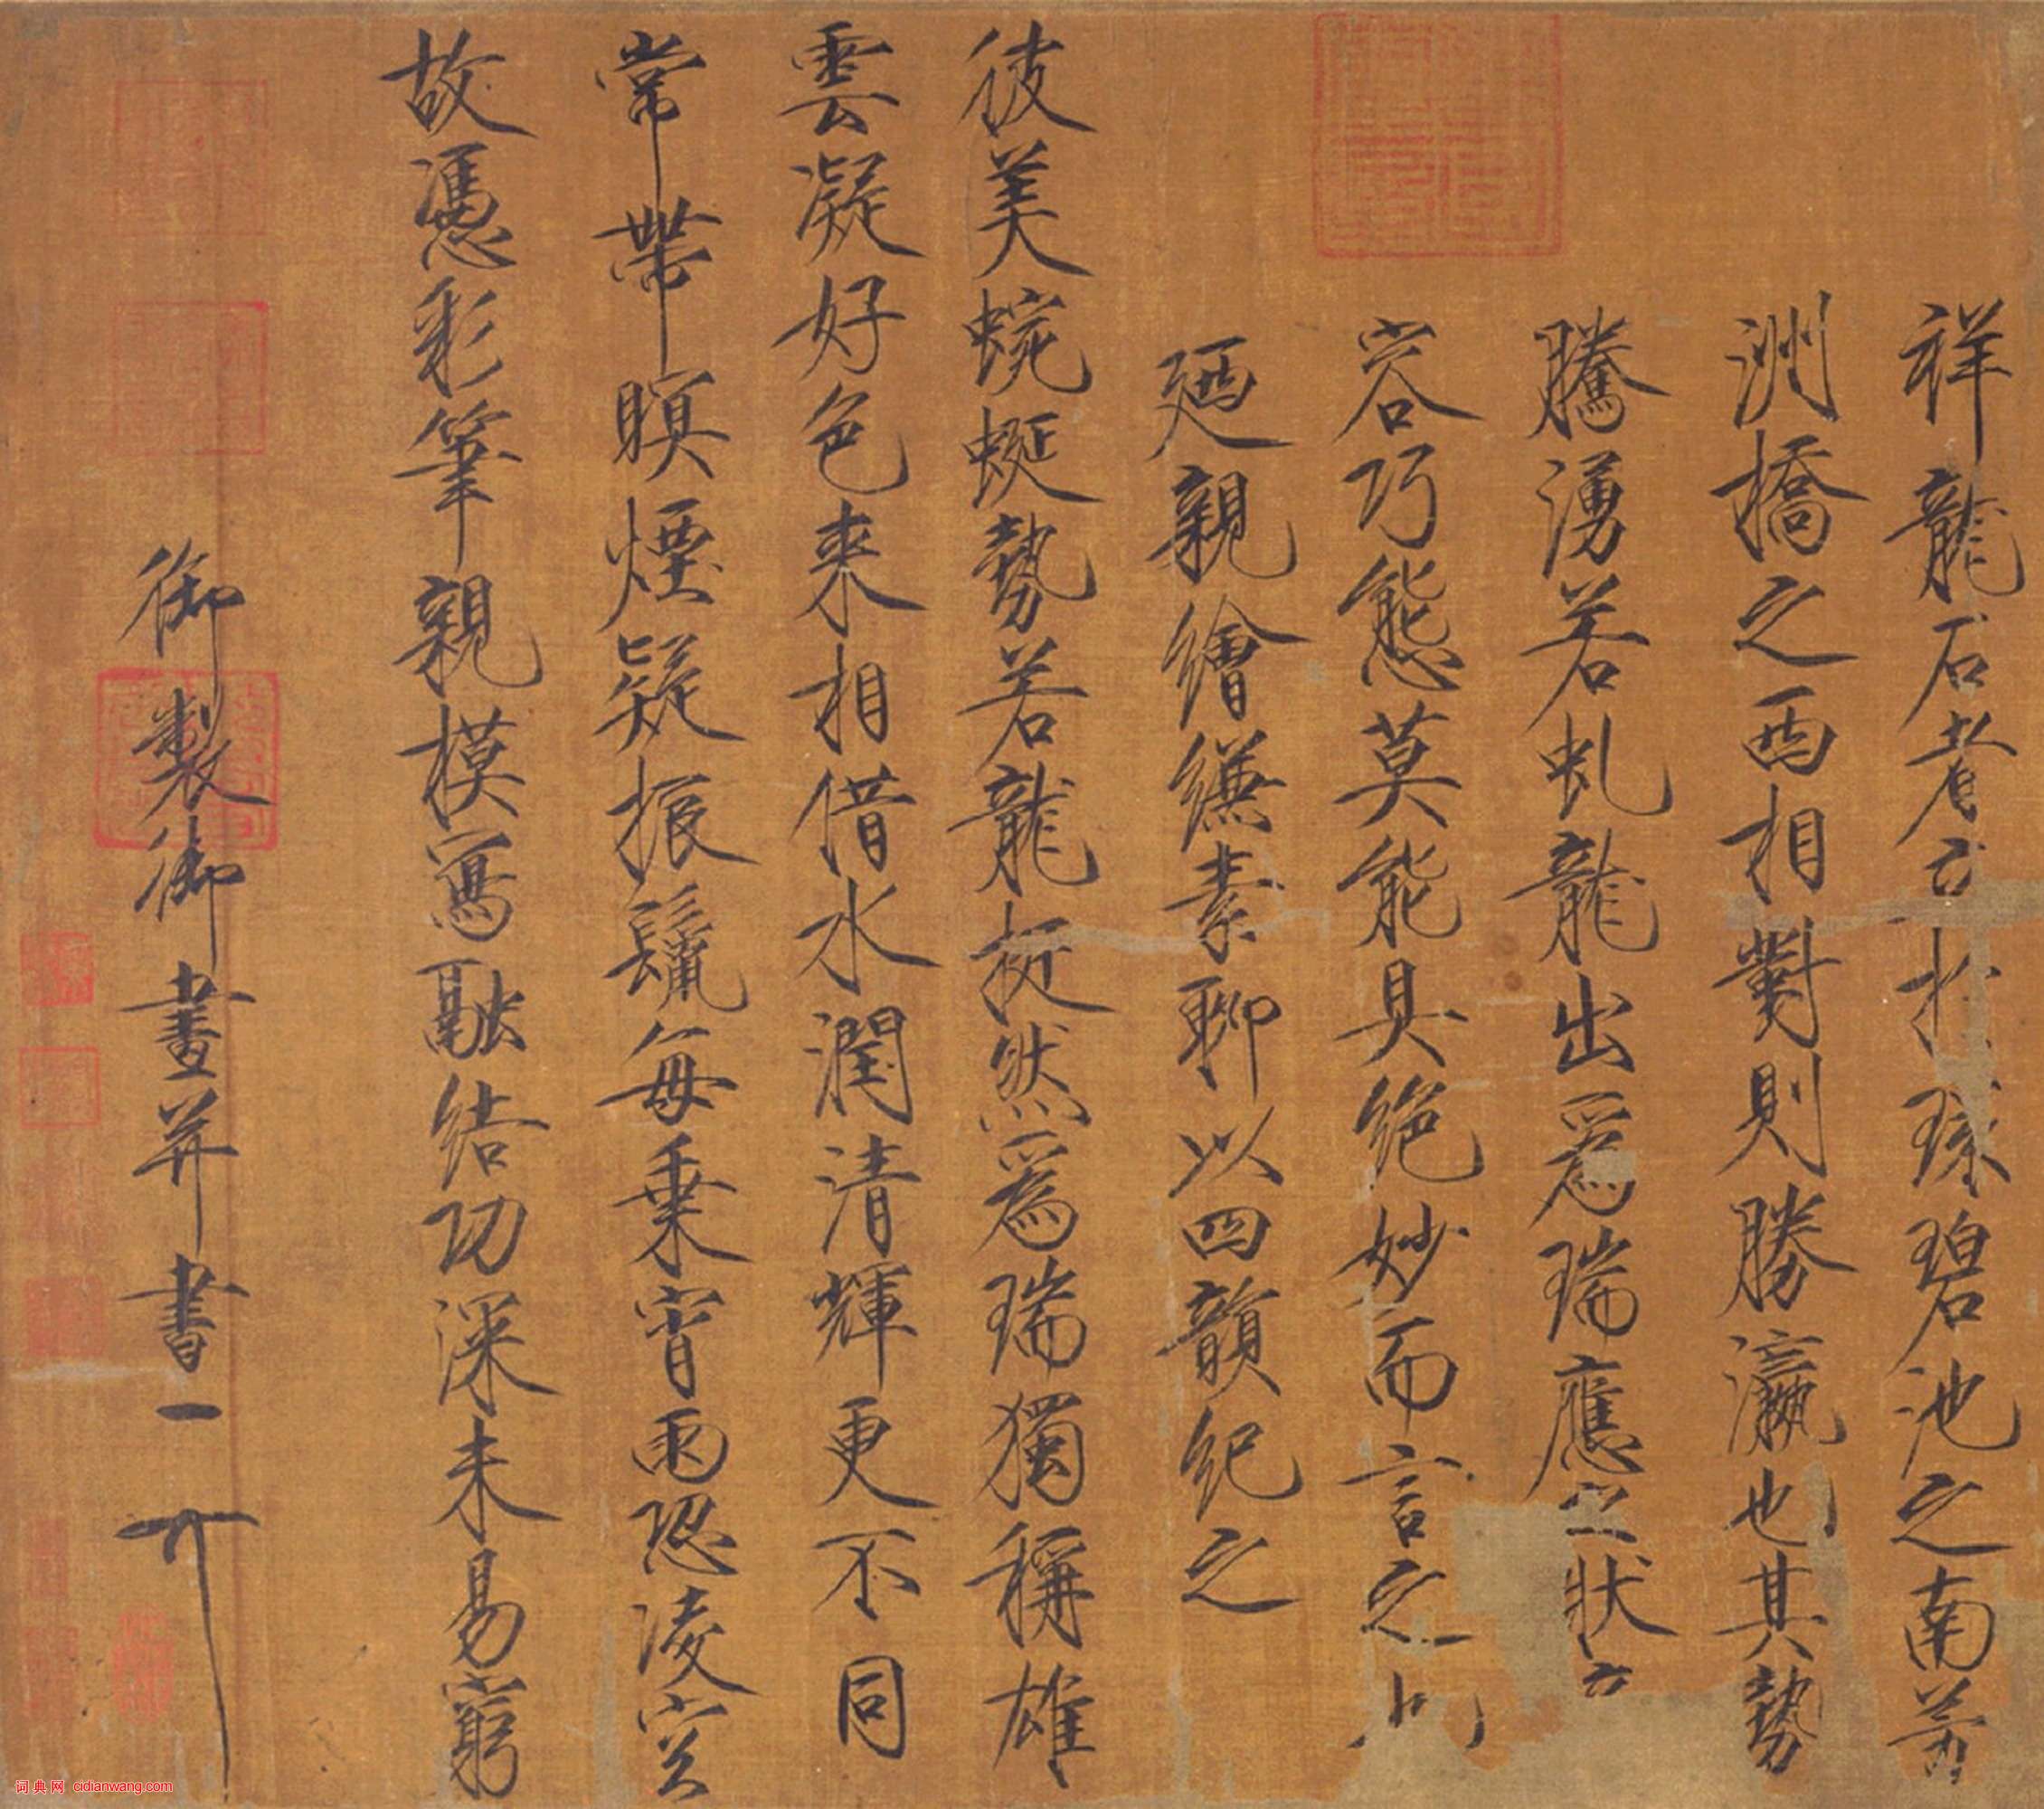 祥龍石者立於環碧池之南芳
洲橋之西相對則勝瀛也其勢
騰湧若虬龍出為瑞應之狀奇
容巧態莫能具絕妙而言之也
廼親繪縑素聊以四韻紀之
彼美蜿蜒勢若龍挺然為瑞獨稱雄
雲凝好色来相借水潤清輝更不同
常帶暝煙疑振鬣每乗宵雨恐凌空
故憑彩筆親模寫融結功深未易窮
御製御畫并書
天下一人
词典网 cidianwang.com